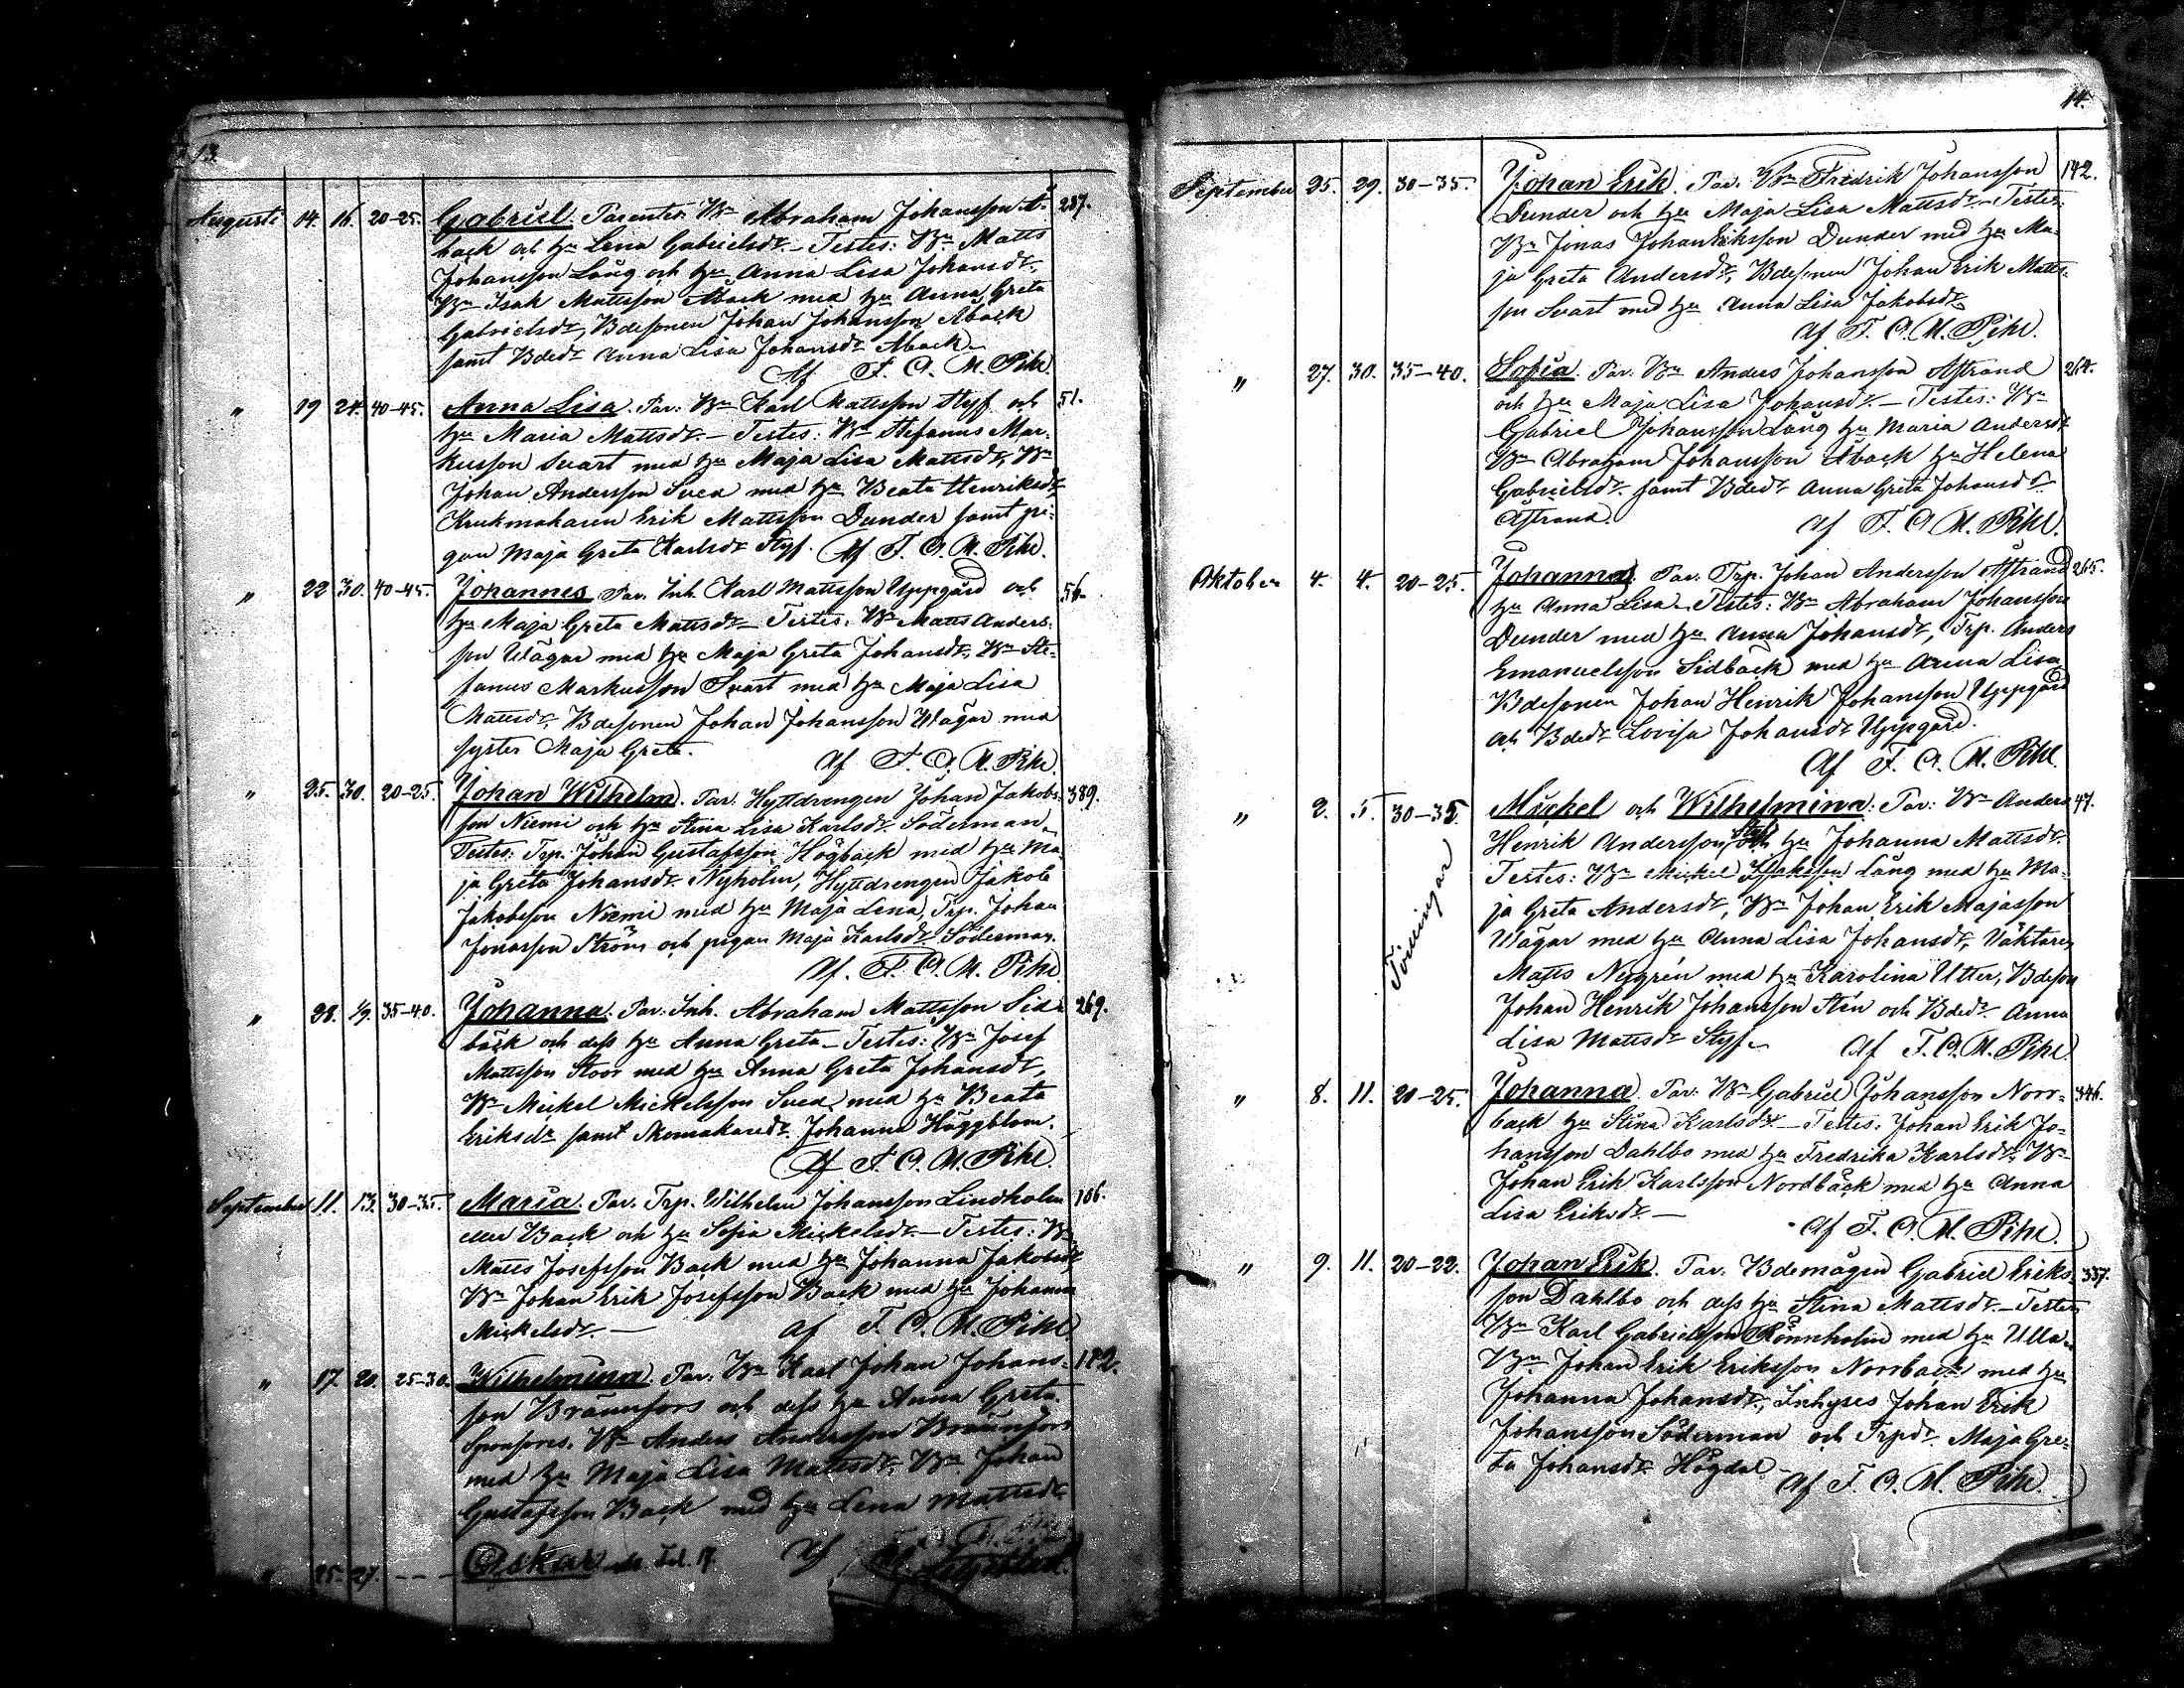 13.
Augusti 14. 16. 20-25. Gabriel. Parentes: Bn Abraham Johansson Å- 287.
back och hu Lena Gabrielsdr. – Testes: Bn Matts
Johansson Lång och hu Anna Lisa Johansdr,
Bn Isak Mattsson Åback med hu Anna Greta
Gabrielsdr, Bdesonen Johan Johansson Åback
samt Bdedr Anna Lisa Johansdr Åback.
Af F. O. M. Pihl.
" 19 24. 40-45. Anna Lisa. Par: Bn Karl Mattsson Styf och 51.
hu Maria Mattsdr. – Testes: Bn Stefanus Mar-
kusson Svart med hu Maja Lisa Mattsdr, Bn
Johan Andersson Sved med hu Beata Henriksdr,
Krukmakaren Erik Mattsson Dunder samt pi-
gan Maja Greta Karlsdr Styf. Af F. O. M. Pihl.
" 22 30. 40-45. Johannes. Par. Inh. Karl Mattsson Uppgård och 56.
hu Maja Greta Mattsdr – Testes: Bn Matts Anders-
son Wägar med hu Maja Greta Johansdr, Bn Ste-
fanus Markusson Svart med hu Maja Lisa
Mattsdr, Bdesonen Johan Johansson Wägar med
syster Maja Greta. Af F. O. M. Pihl.
" 25. 30. 20-25. Johan Wilhelm. Par: Hyttdrengen Johan Jakobs- 389.
son Niemi och hu Stina Lisa Karlsdr Söderman.
Testes: Trp. Johan Gustafsson Högback med hu Ma-
ja Greta Johansdr Nyholm, Hyttdrengen Jakob
Jakobsson Niemi med hu Maja Lena, Trp. Johan
Jonasson Ström och pigan Maja Karlsdr Söderman.
Af. F. O. M. Pihl
" 28. 1/9. 35-40. Johanna. Par: Inh. Abraham Mattsson Sid- 269.
bäck och dess hu Anna Greta – Testes: Bn Josef
Mattsson Stoor med hu Anna Greta Johansdr,
Bn Mickel Mickelsson Sved med hu Beata
Eriksdr samt Skomakaredr Johanna Häggblom.
Af F. O. M. Pihl.
September 11. 13. 30-35. Maria. Par. Trp. Wilhelm Johansson Lindholm 106.
eller Back och hu Sofia Mickelsdr – Testes: Bn
Matts Josefsson Back med hu Johanna Jakobsdr,
Bn Johan Erik Josefsson Back med hu Johanna
Mickelsdr. – af F. O. M. Pihl
" 17. 20. 25-30. Wilhelmina. Par: Bn Karl Johan Johans- 182.
son Brännfors och dess hu Anna Greta
Sponsores. Bn Anders Andersson Brännfors
med hu Maja Lisa Mattsdr, Bn Johan
Gustafsson Back med hu Lena Mattsdr
" 25. 27. - - - Oskar Fol. 17. Af
14.
September 25. 29. 30-35. Johan Erik. Par. Bn Fredrik Johansson 142.
Dunder och hu Maja Lisa Mattsdr – Testes:
Bn Jonas Johan Eriksson Dunder med hu Ma-
ja Greta Andersdr, Bdesonen Johan Erik Matts-
son Svart med hu Anna Lisa Jakobsdr.
Af F. O. M. Pihl.
" 27. 30. 35-40. Sofia. Par: Bn Anders Johansson Åstrand 264.
och hu Maja Lisa Johansdr – Testes: Bn
Gabriel Johansson Lång hu Maria Andersdr
Bn Abraham Johansson Åback hu Helena
Gabrielsdr. samt Bdedr Anna Greta Johansdr
Åstrand. af F. O. M. Pihl.
Oktober 4. 4. 20-25. Johanna. Par: Trp. Johan Andersson Åstrand 265.
hu Anna Lisa – Testes: Bn Abraham Johansson
Dunder med hu Anna Johansdr, Trp. Anders
Emanuelsson Sidback med hu Anna Lisa
Bdesonen Johan Henrik Johansson Uppgård
och Bdedr Lovisa Johansdr Uppgård.
Af F. O. M. Pihl.
" 2. 5. 30-35. Mickel och Wilhelmina. Par: Bn Anders 47.
Tvillingar
Henrik Andersson Styf och hu Johanna Mattsdr.
Testes: Bn Mickel Isaksson Lång med hu Ma-
ja Greta Andersdr, Bn Johan Erik Majasson
Wägar med hu Anna Lisa Johansdr, Väktaren
Matts Nygrén med hu Karolina Utter, Bdeson
Johan Henrik Johansson Stén och Bdedr Anna
Lisa Mattsdr Styf. Af F. O. M. Pihl
" 8. 11. 20-25. Johanna. Par: Bn Gabriel Johansson Norr- 346.
back hu Stina Karlsdr – Testes: Johan Erik Jo-
hansson Dahlbo med hu Fredrika Karlsdr, Bn
Johan Erik Karlsson Nordbäck med hu Anna
Lisa Eriksdr. – Af F. O. M. Pihl.
" 9. 11. 20-22. Johan Erik. Par. Bdemågen Gabriel Eriks- 357.
son Dahlbo och dess hu Stina Mattsdr. – Testes
Bn Karl Gabrielsson Rönnholm med hu Ulla.
Bn Johan Erik Eriksson Norrback med hu
Johanna Johansdr, Inhyses Johan Erik
Johansson Söderman och Trpdr Maja Gre-
ta Johansdr Högdal. Af F. O. M. Pihl